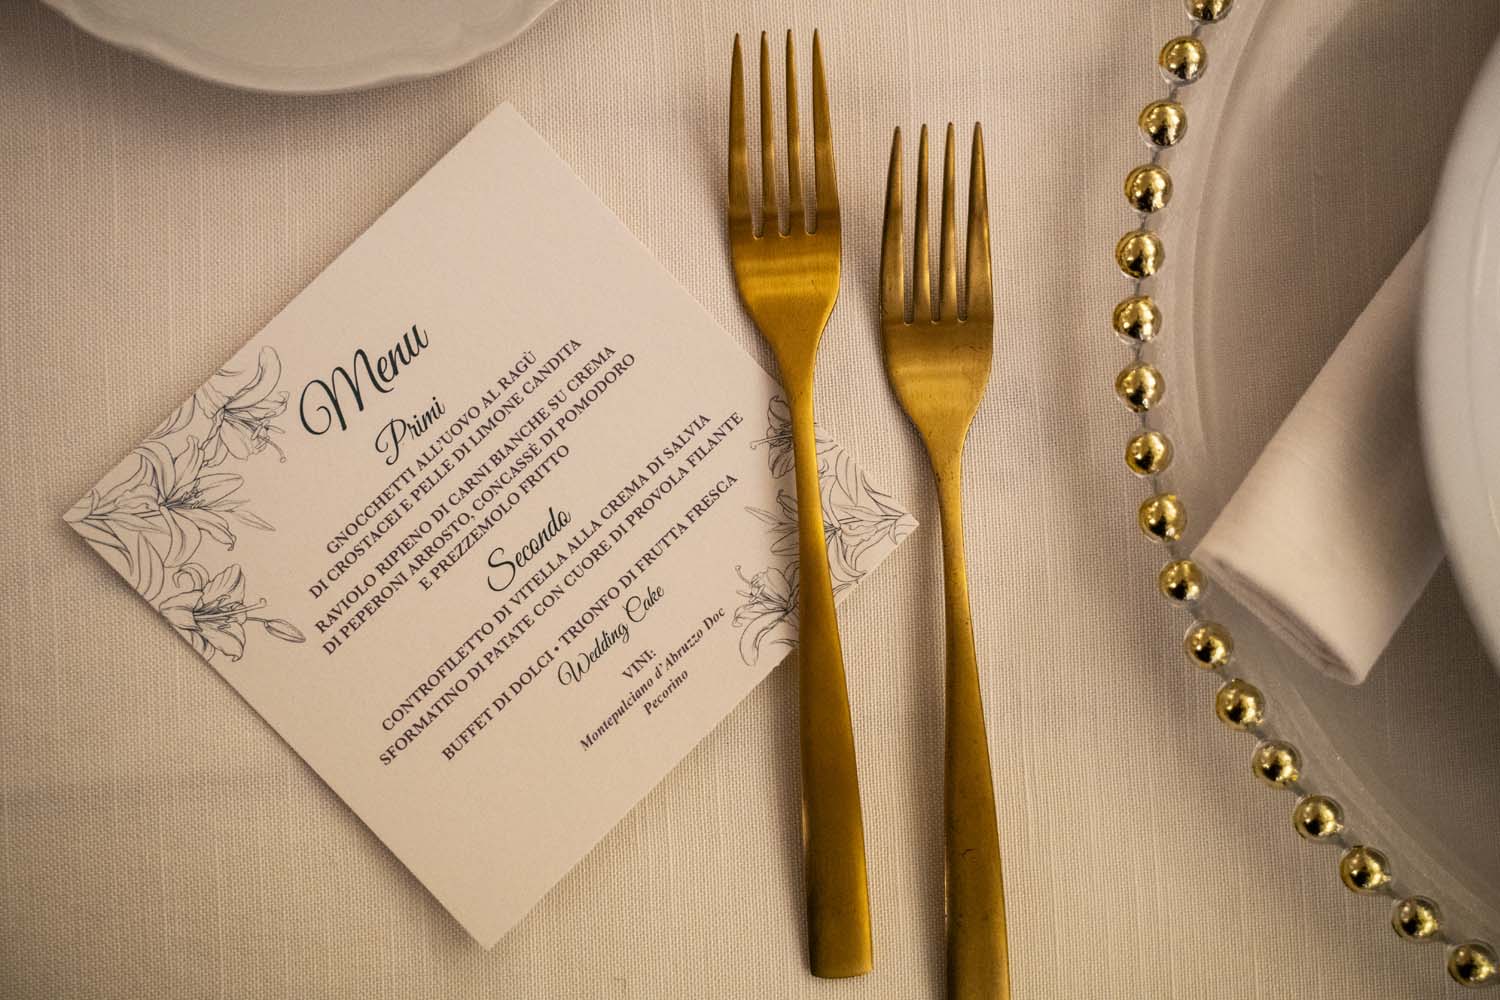 Menu
Primi
GNOCCHETTI ALL'UOVO AL RAGÙ
DI CROSTACEI E PELLE DI LIMONE CANDITA
RAVIOLO RIPIENO DI CARNI BIANCHE SU CREMA
DI PEPERONI ARROSTO, CONCASSÈ DI POMODORO
E PREZZEMOLO FRITTO
Secondo
CONTROFILETTO DI VITELLA ALLA CREMA DI SALVIA
SFORMATINO DI PATATE CON CUORE DI PROVOLA FILANTE
BUFFET DI DOLCI • TRIONFO DI FRUTTA FRESCA
Wedding Cake
VINI:
Montepulciano d'Abruzzo Doc
Pecorino